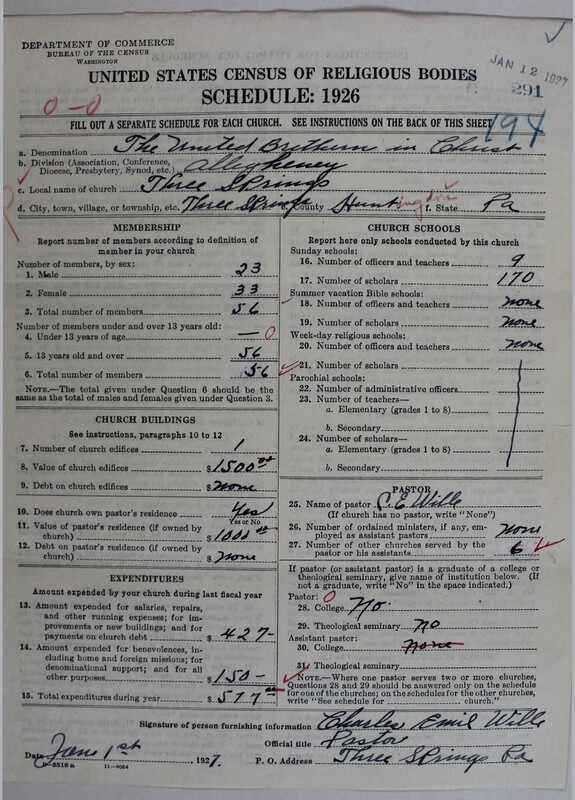 DEPARTMENT OF COMMERCE
BUREAU OF THE CENSUS
WASHINGTON
JAN 12 1927
291
UNITED STATES CENSUS OF RELIGIOUS BODIES
SCHEDULE: 1926
0-0
194
FILL OUT A SEPARATE SCHEDULE FOR EACH CHURCH. SEE INSTRUCTIONS ON THE BACK OF THIS SHEET
a. Denomination The United Brethern in Christ
b. Division (Association, Conference, Diocese, Presbytery, Synod, etc.) Allegheney
c. Local name of church Three Springs
d. City, town, village, or township, etc. Three Springs e. County Huntingdon f. State Pa
MEMBERSHIP
Report number of members according to definition of
member in your church
Number of members, by sex:
1. Male 23
2. Female 33
3. Total number of members 56
Number of members under and over 13 years old:
4. Under 13 years of age — 0
5. 13 years old and over 56
6. Total number of members 56
NOTE.—The total given under Question 6 should be the
same as the total of males and females given under Question 3.
CHURCH BUILDINGS
See instructions, paragraphs 10 to 12
7. Number of church edifices 1
8. Value of church edifices $1500 00
9. Debt on church edifices $None
10. Does church own pastor's residence Yes
Yes or No
11. Value of pastor's residence (if owned by
church) $1000 00
12. Debt on pastor's residence (if owned by
church) $None
EXPENDITURES
Amount expended by your church during last fiscal year
13. Amount expended for salaries, repairs,
and other running expenses; for im-
provements or new buildings; and for
payments on church debt $427-
14. Amount expended for benevolences,
including home and foreign missions; for
denominational support; and for all
other purposes $150-
15. Total expenditures during year $577 00
CHURCH SCHOOLS
Report here only schools conducted by this church
Sunday schools:
16. Number of officers and teachers 9
17. Number of scholars 170
Summer vacation Bible schools:
18. Number of officers and teachers none
19. Number of scholars none
Week-day religious schools:
20. Number of officers and teachers none
21. Number of scholars
Parochial schools:
22. Number of administrative officers
23. Number of teachers—
a. Elementary (grades 1 to 8)
b. Secondary
24. Number of scholars—
a. Elementary (grades 1 to 8)
b. Secondary
PASTOR
25. Name of pastor C. E. Wille
(If church has no pastor, write "None")
26. Number of ordained ministers, if any, em-
ployed as assistant pastors None
27. Number of other churches served by the
pastor or his assistants 6
If pastor (or assistant pastor) is a graduate of a college or
theological seminary, give name of institution below. (If
not a graduate, write "No" in the space indicated.)
Pastor: 0
28. College No.
29. Theological seminary No
Assistant pastor:
30. College none
31. Theological seminary
NOTE.—Where one pastor serves two or more churches,
Questions 28 and 29 should be answered only on the schedule
for one of the churches; on the schedules for the other churches,
write "See schedule for church."
Signature of person furnishing information Charles Emil Wille
Official title Pastor
Date June 1st 1927. P. O. Address Three Springs Pa
8-5518a 11-9034